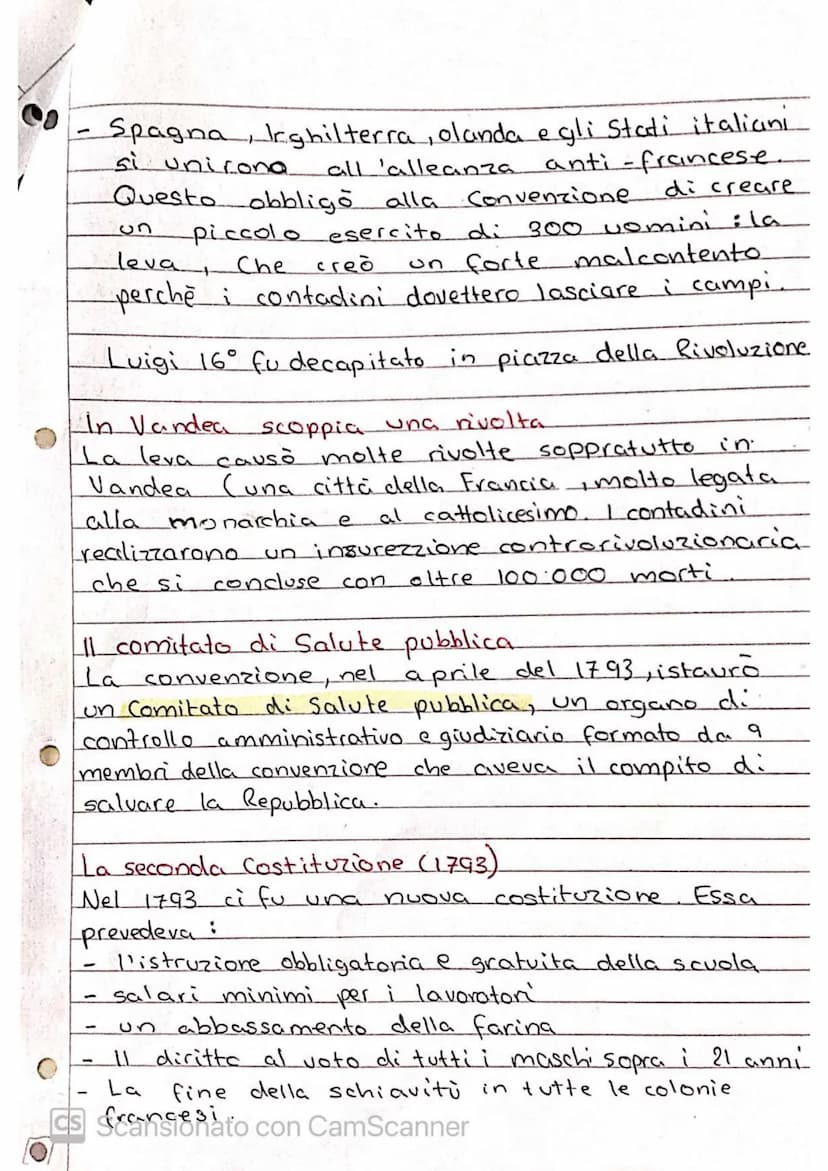 - Spagna, Irghilterra, olanda e gli Stati italiani
si unirono all'alleanza anti-francese.
Questo obbligò alla Convenzione di creare
un piccolo esercito di 300 uomini: la
leva, che creò un forte malcontento
perchè i contadini dovettero lasciare i campi.
Luigi 16° fu decapitato in piazza della Rivoluzione
In Vandea scoppia una rivolta
La leva causò molte rivolte soppratutto in
Vandea (una città della Francia, molto legata
alla monarchia e al cattolicesimo. I contadini
realizzarono un insurezzione controrivoluzionaria
che si concluse con oltre 100.000 morti.
Il comitato di Salute pubblica
La convenzione, nel aprile del 1793, istaurò
un Comitato di Salute pubblica, un organo di
controllo amministrativo e giudiziario formato da 9
membri della convenzione che aveva il compito di
salvare la Repubblica.
La seconda Costituzione (1793)
Nel 1793 ci fu una nuova costituzione. Essa
prevedeva:
- l'istruzione obbligatoria e gratuita della scuola
- salari minimi per i lavoratori
- un abbassamento della farina
- Il diritto al voto di tutti i maschi sopra i 21 anni
- La fine della schiavitù in tutte le colonie
francesi.
CS Scansionato con CamScanner